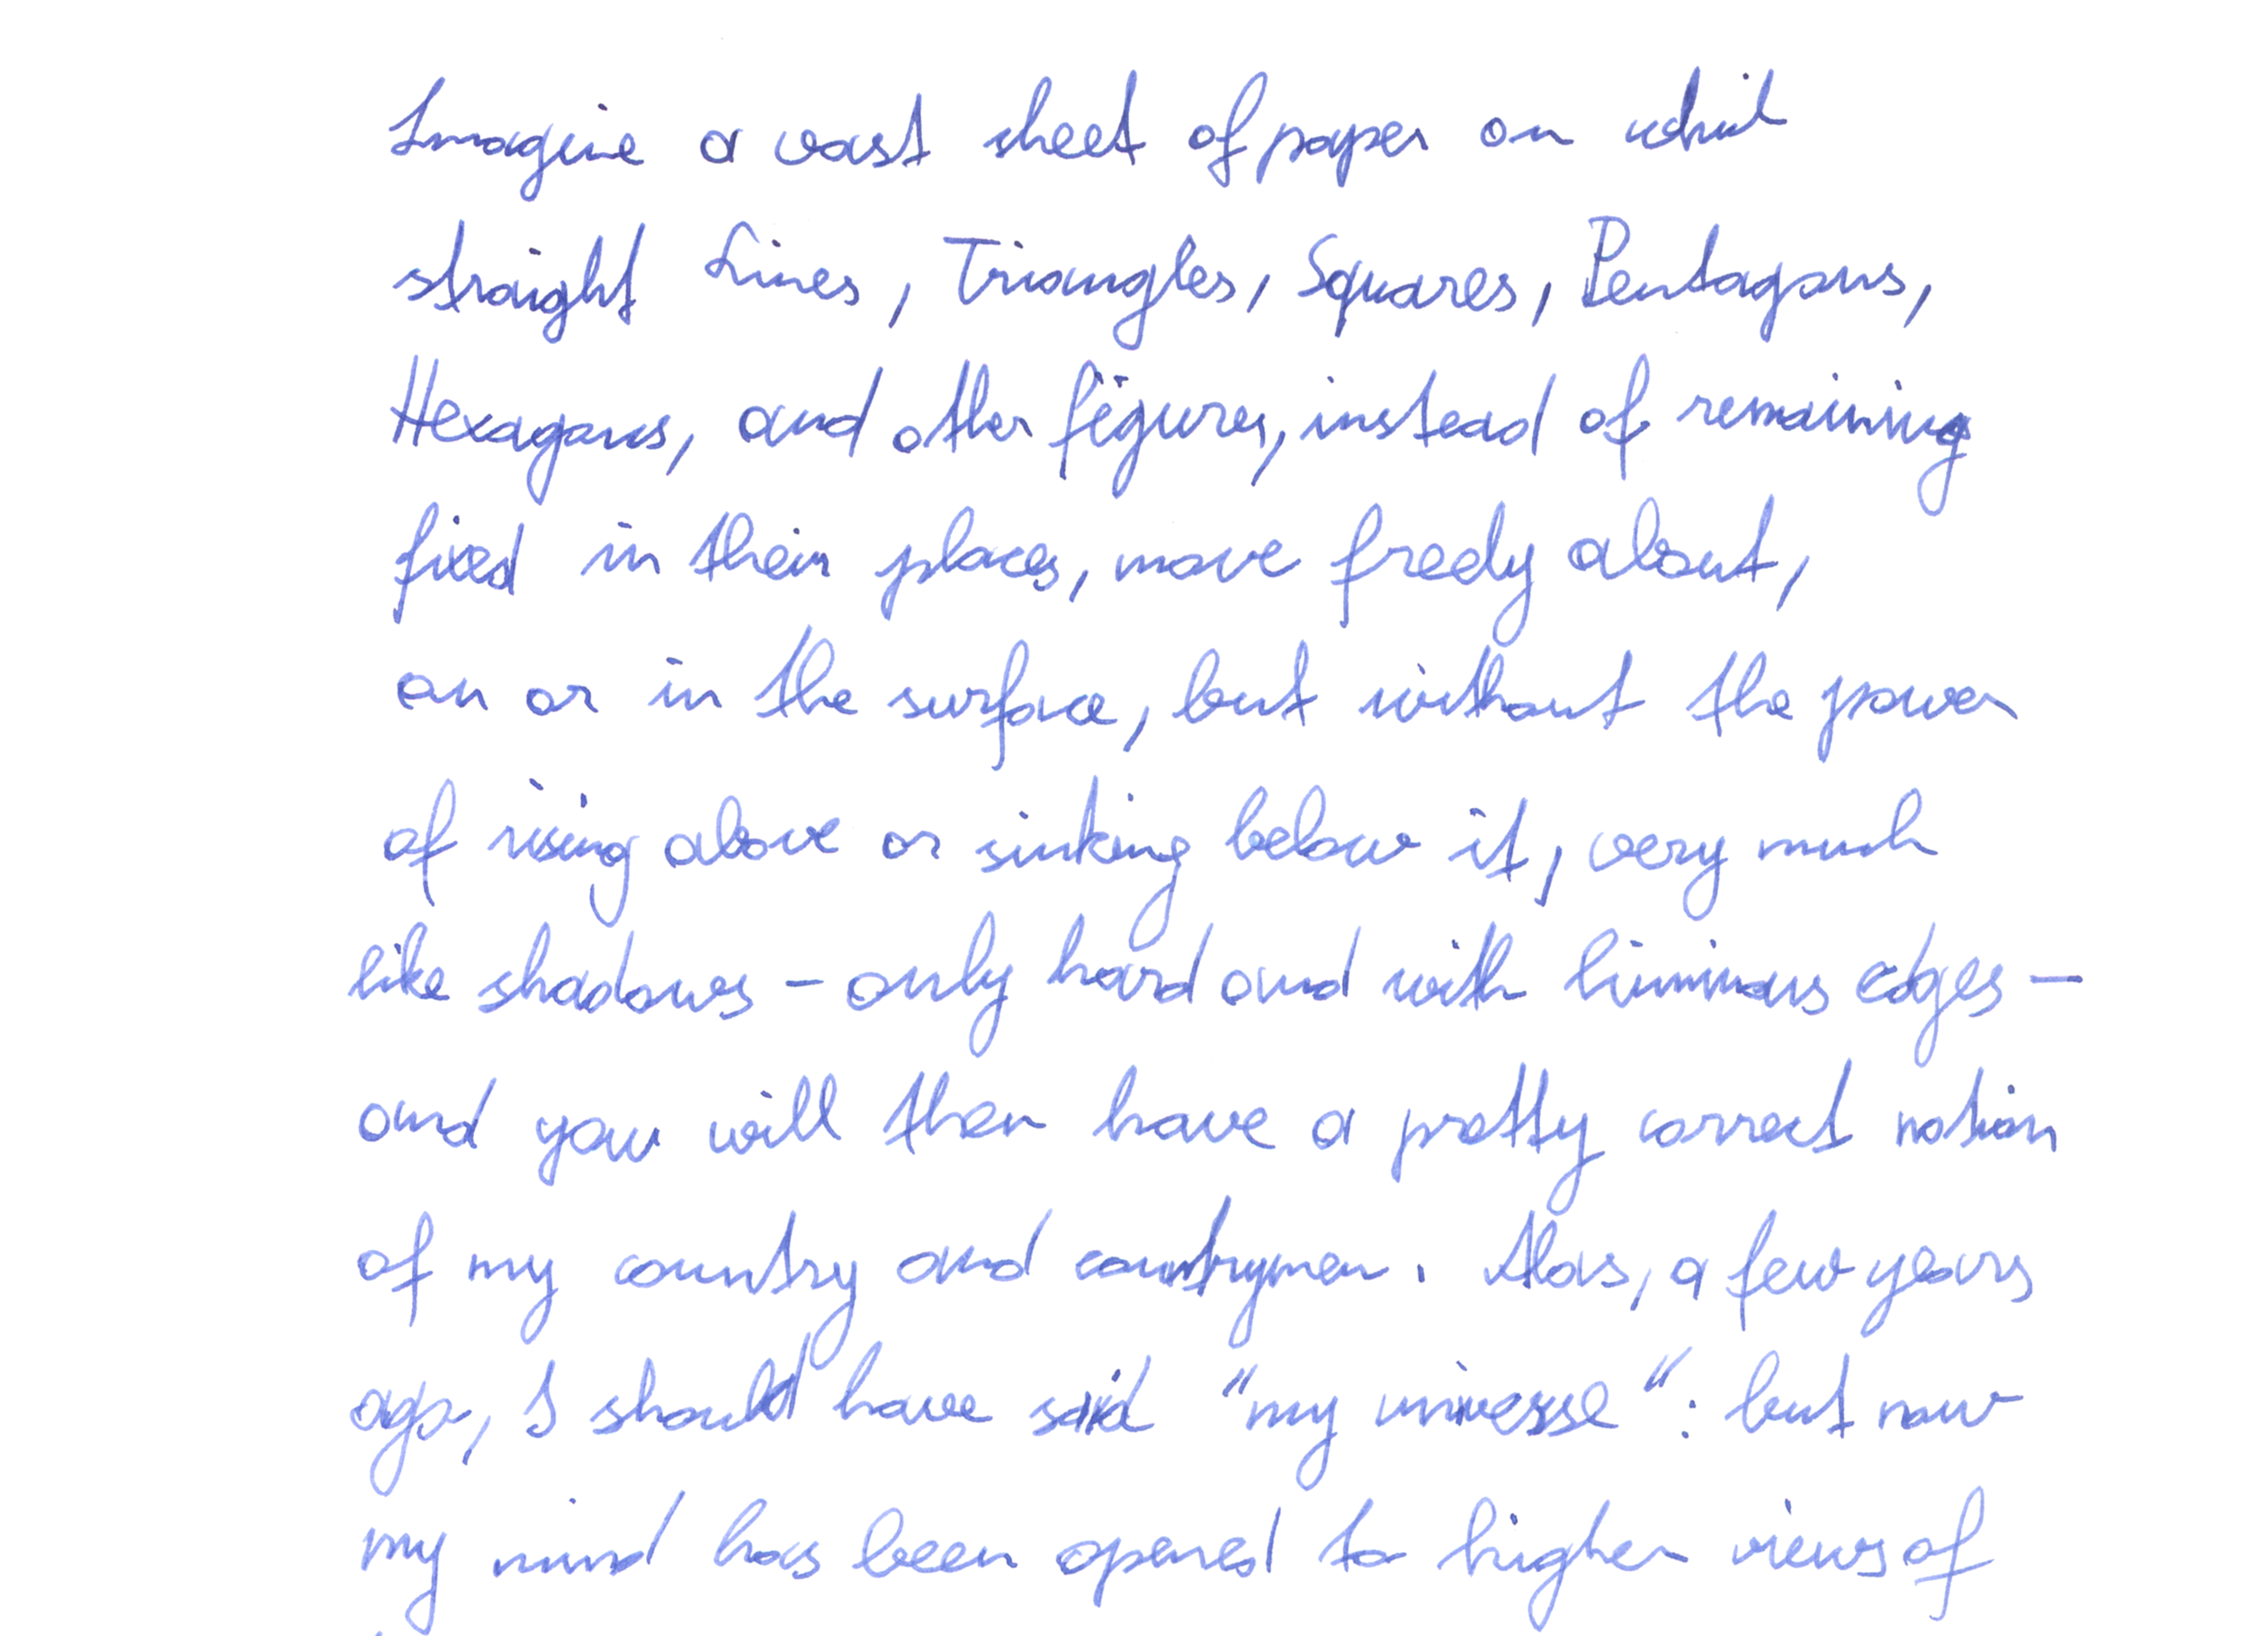 Imagine a vast sheet of paper on which
straight Lines, Triangles, Squares, Pentagons,
Hexagons, and other figures, instead of remaining
fixed in their places, move freely about,
on or in the surface, but without the power
of rising above or sinking below it, very much
like shadows – only hard and with luminous edges –
and you will then have a pretty correct notion
of my country and countrymen. Alas, a few years
ago, I should have said "my universe": but now
my mind has been opened to higher views of